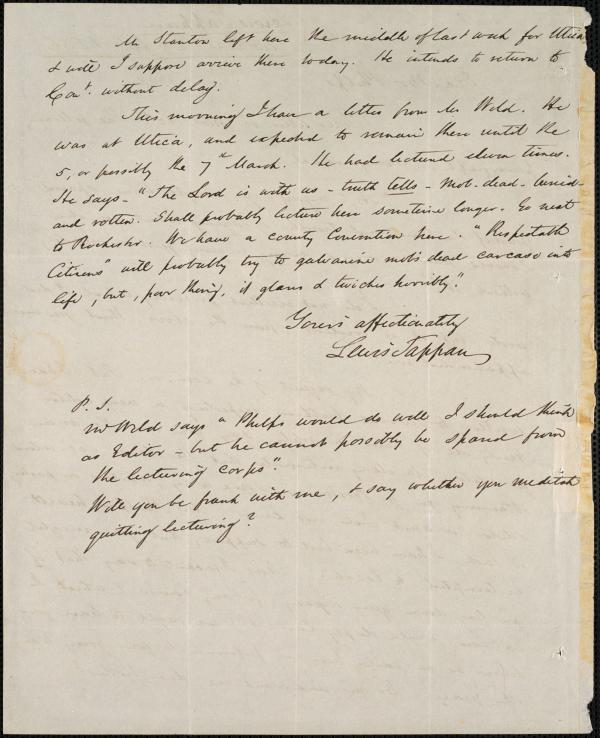 Mr Stanton left here the middle of last week for Utica
& will I suppose arrive there today. He intends to return to
Cont. without delay.
This morning I have a letter from Mr Weld. He
was at Utica, and expected to remain there until the
5, or possibly the 7th March. He had lectured eleven times.
He says - "The Lord is with us - truth tells - mob - dead - buried -
and rotten. Shall probably lecture here sometime longer. Go next
to Rochester. We have a county Convention here. "Respectable
Citizens" will probably try to galvanize mob's dead carcase into
life, but, poor thing, it glares & twiches horribly".
Yours affectionately
Lewis Tappan
P. S.
Mr Weld says "Phelps would do well I should think
as Editor - but he cannot possibly be spared from
the lecturing corps".
Will you be frank with me, & say whether you meditate
quitting lecturing?